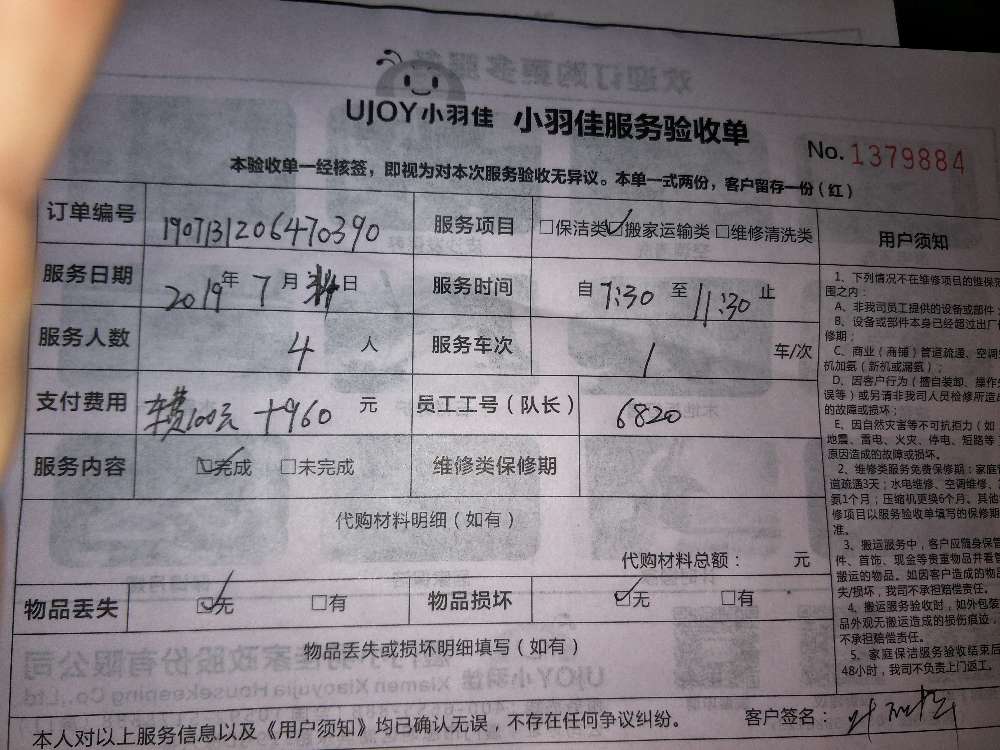 UJOY小羽佳 小羽佳服务验收单
No. 1379884
本验收单一经核签，即视为对本次服务验收无异议。本单一式两份，客户留存一份（红）
订单编号 1907131206470390 服务项目 □保洁类 ☑搬家运输类 □维修清洗类
服务日期 2019年7月 日 服务时间 自7:30至11:30止
服务人数 4 人 服务车次 1 车/次
支付费用 车费100元 +960 元 员工工号（队长） 6820
服务内容 ☑完成 □未完成 维修类保修期
代购材料明细（如有）
代购材料总额： 元
物品丢失 ☑无 □有 物品损坏 ☑无 □有
物品丢失或损坏明细填写（如有）
本人对以上服务信息以及《用户须知》均已确认无误，不存在任何争议纠纷。 客户签名：
用户须知
1、下列情况不在维修项目的维保范
围之内：
A、非我司员工提供的设备或部件；
B、设备或部件本身已经超过出厂
修期；
C、商业（商铺）管道疏通、空调
机加氨（新机或漏氨）；
D、因客户行为（擅自装卸、操作失
误等）或另请非我司人员检修所造成
的故障或损坏；
E、因自然灾害等不可抗拒力（如
地震、雷电、火灾、停电、短路等
原因造成的故障或损坏。
2、维修类服务免费保修期：家庭管
道疏通3天；水电维修、空调维修、
氨1个月；压缩机更换6个月。其他
修项目以服务验收单填写的保修期
准。
3、搬运服务中，客户应随身保管
件、首饰、现金等贵重物品并看管
搬运的物品。如因客户造成的物品
失/损坏，我司不承担赔偿责任。
4、搬运服务验收时，如外包装
品外观无搬运造成的损伤痕迹，
不承担赔偿责任。
5、家庭保洁服务验收结束后
48小时，我司不负责上门返工。